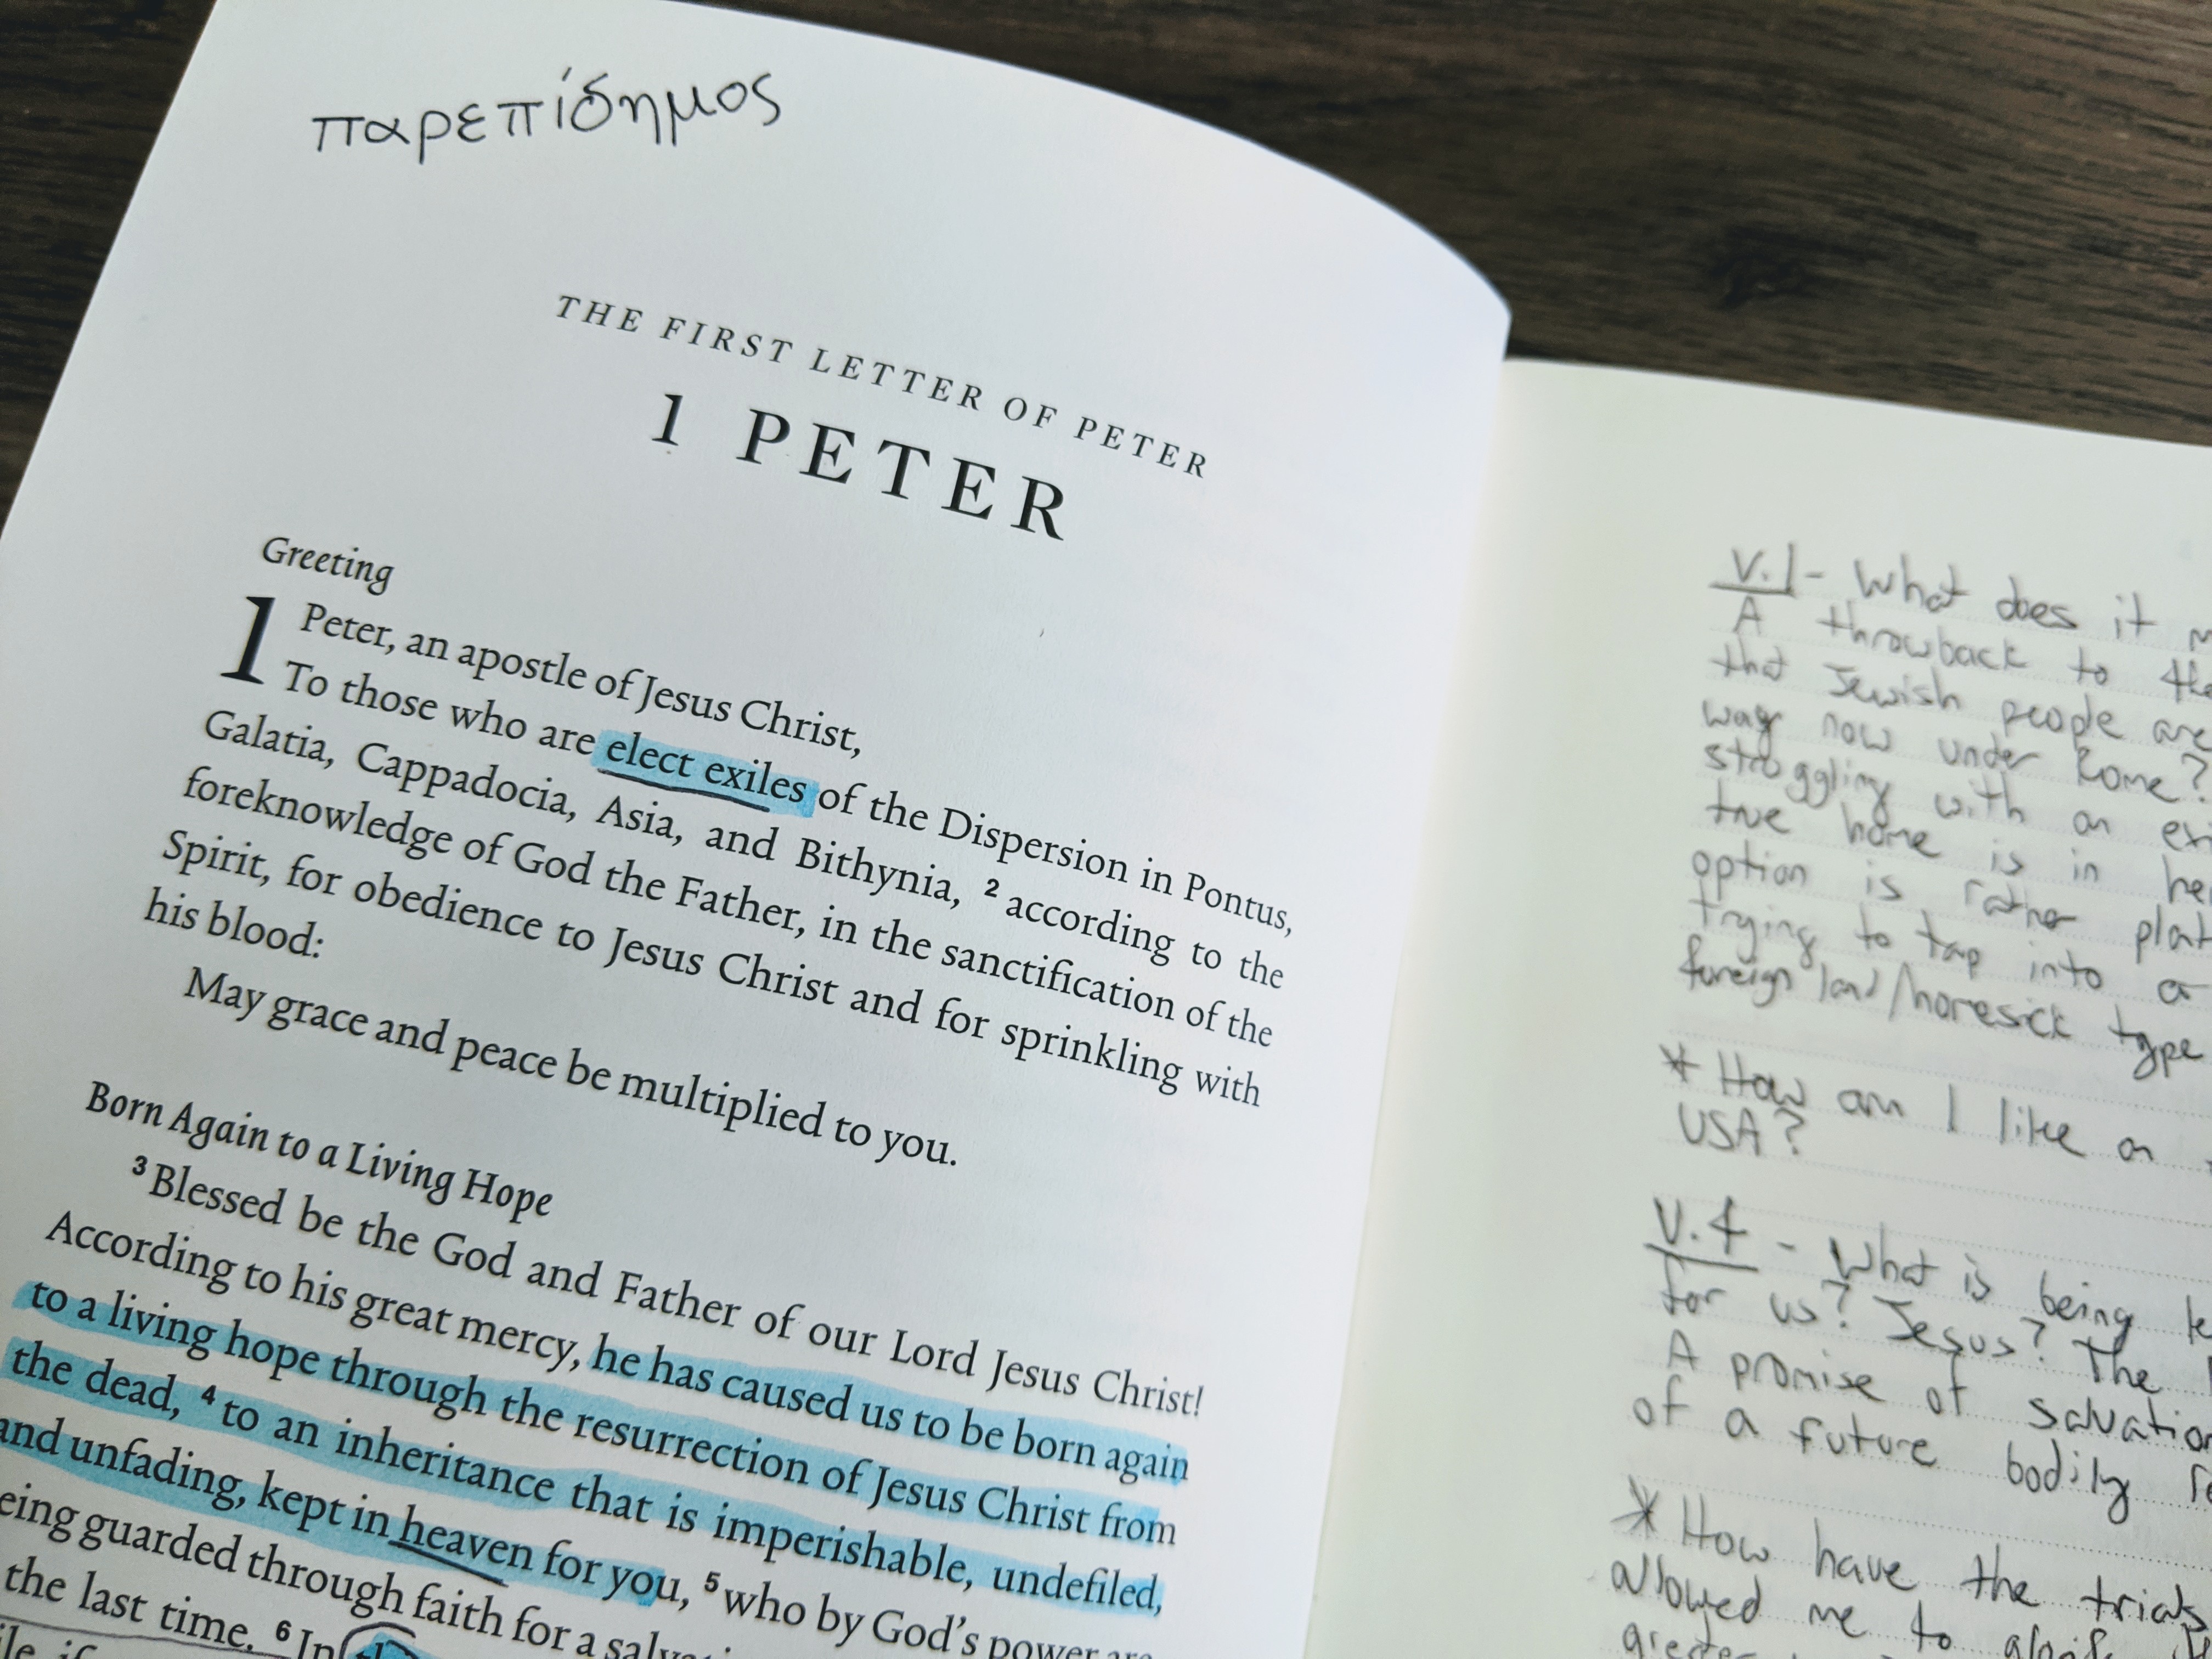 παρεπίδημος
THE FIRST LETTER OF PETER
1 PETER
Greeting
1 Peter, an apostle of Jesus Christ,
To those who are elect exiles of the Dispersion in Pontus,
Galatia, Cappadocia, Asia, and Bithynia, 2 according to the
foreknowledge of God the Father, in the sanctification of the
Spirit, for obedience to Jesus Christ and for sprinkling with
his blood:
May grace and peace be multiplied to you.
Born Again to a Living Hope
3 Blessed be the God and Father of our Lord Jesus Christ!
According to his great mercy, he has caused us to be born again
to a living hope through the resurrection of Jesus Christ from
the dead, 4 to an inheritance that is imperishable, undefiled,
and unfading, kept in heaven for you, 5 who by God's power are
eing guarded through faith for a
the last time. 6 In
V.1 - What does it
A throwback to
that Jewish people are
way now under Rome?
struggling with an
true home is in
option is rather
trying to tap into a
foreign land/homesick type
* How am I like an
USA?
V.4 - What is being
for us? Jesus? The
A promise of salvation
of a future bodily
* How have the trials
allowed me to